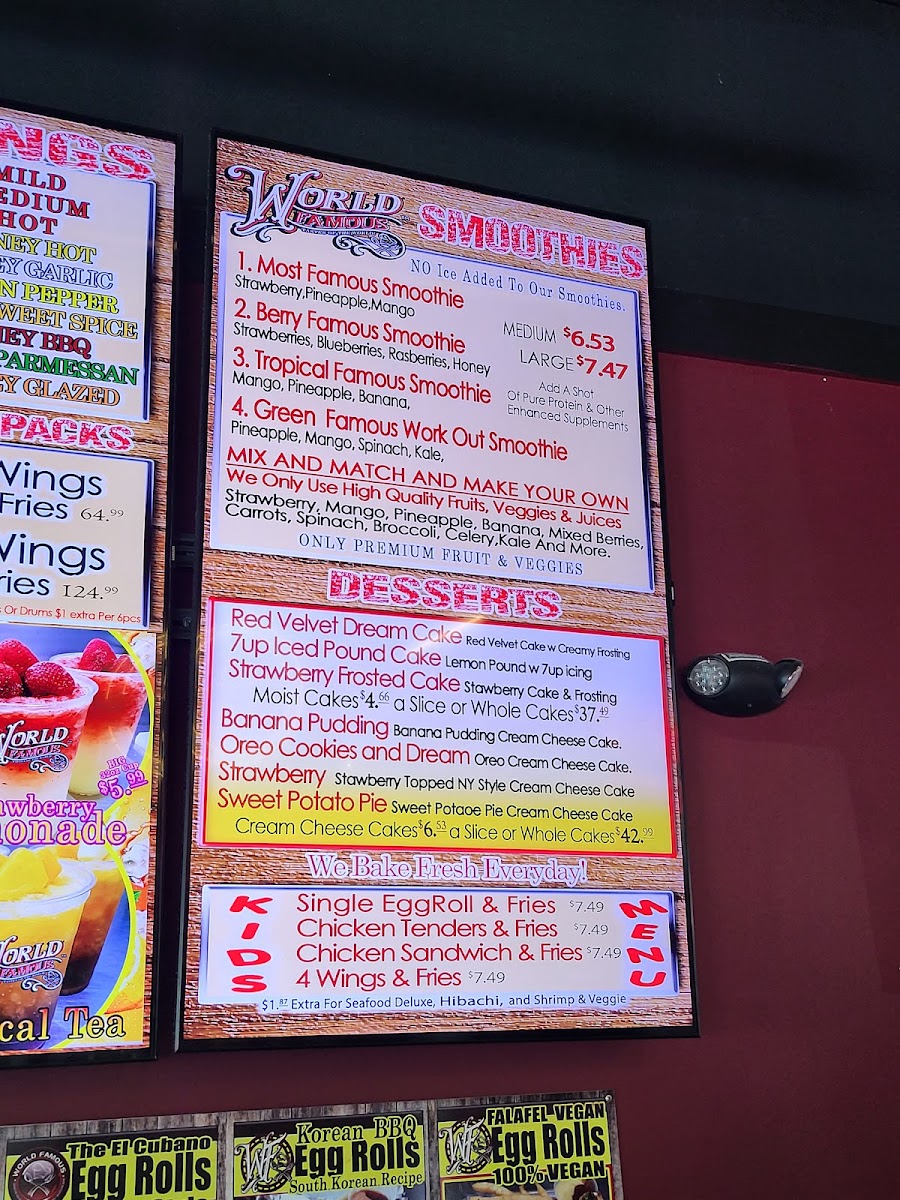 MILD
MEDIUM
HOT
HOT
GARLIC
PEPPER
SWEET SPICE
BBQ
PARMESSAN
GLAZED
PACKS
Wings
Fries 64.99
Wings
124.99
Or Drums $1 extra Per 6pcs
WORLD
FAMOUS
BIG
32oz Cup
$5.99
WORLD
FAMOUS
Tea
WORLD
FAMOUS
SMOOTHIES
NO Ice Added To Our Smoothies.
1. Most Famous Smoothie
Strawberry,Pineapple,Mango
2. Berry Famous Smoothie
Strawberries, Blueberries, Rasberries, Honey
3. Tropical Famous Smoothie
Mango, Pineapple, Banana,
4. Green Famous Work Out Smoothie
Pineapple, Mango, Spinach, Kale,
MEDIUM $6.53
LARGE $7.47
Add A Shot
Of Pure Protein & Other
Enhanced Supplements
MIX AND MATCH AND MAKE YOUR OWN
We Only Use High Quality Fruits, Veggies & Juices
Strawberry, Mango, Pineapple, Banana, Mixed Berries,
Carrots, Spinach, Broccoli, Celery,Kale And More.
ONLY PREMIUM FRUIT & VEGGIES
DESSERTS
Red Velvet Dream Cake Red Velvet Cake w Creamy Frosting
7up Iced Pound Cake Lemon Pound w 7up icing
Strawberry Frosted Cake Stawberry Cake & Frosting
Moist Cakes $4.66 a Slice or Whole Cakes $37.49
Banana Pudding Banana Pudding Cream Cheese Cake.
Oreo Cookies and Dream Oreo Cream Cheese Cake.
Strawberry Stawberry Topped NY Style Cream Cheese Cake
Sweet Potato Pie Sweet Potaoe Pie Cream Cheese Cake
Cream Cheese Cakes $6.53 a Slice or Whole Cakes $42.99
We Bake Fresh Everyday!
KIDS
MENU
Single EggRoll & Fries $7.49
Chicken Tenders & Fries $7.49
Chicken Sandwich & Fries $7.49
4 Wings & Fries $7.49
$1.87 Extra For Seafood Deluxe, Hibachi, and Shrimp & Veggie
WORLD FAMOUS
The El Cubano
Egg Rolls
WF
Korean BBQ
Egg Rolls
South Korean Recipe
WF
FALAFEL VEGAN
Egg Rolls
100% VEGAN